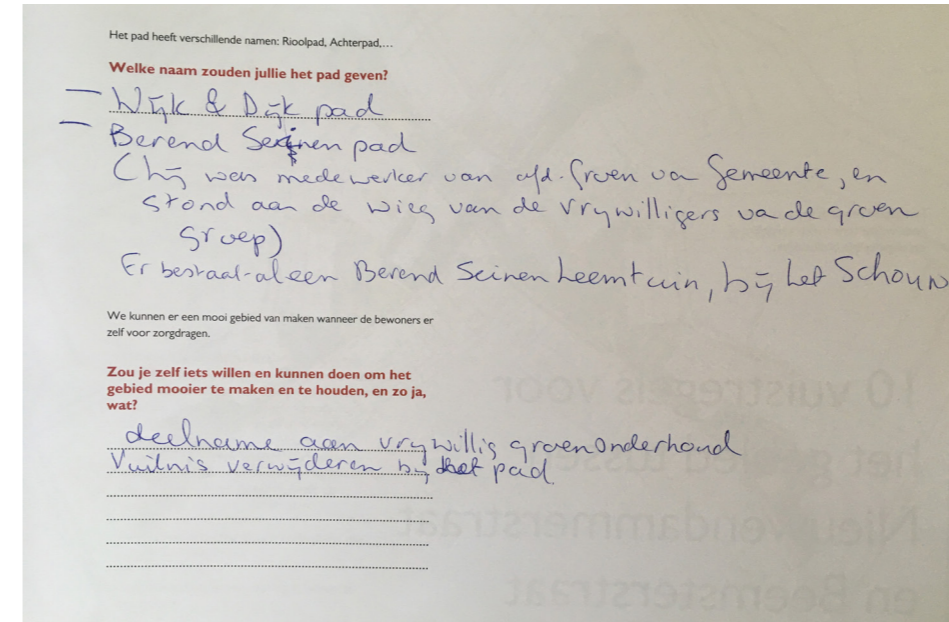 Het pad heeft verschillende namen: Rioolpad, Achterpad,...
Welke naam zouden jullie het pad geven?
— Wijk & Dijk pad
— Berend Seinen pad
(hij was medewerker van afd. Groen va Gemeente, en
stond aan de wieg van de vrywilligers va de groen
groep)
Er bestaat al een Berend Seinen heemtuin, bij het Schouw
We kunnen er een mooi gebied van maken wanneer de bewoners er
zelf voor zorgdragen.
Zou je zelf iets willen en kunnen doen om het
gebied mooier te maken en te houden, en zo ja,
wat?
deelname aan vrywillig groenonderhoud
Vuilnis verwijderen bij het pad.
10 vuistregels voor
het gebied tussen
Nieuwendammerstraat
en Beemsterstraat